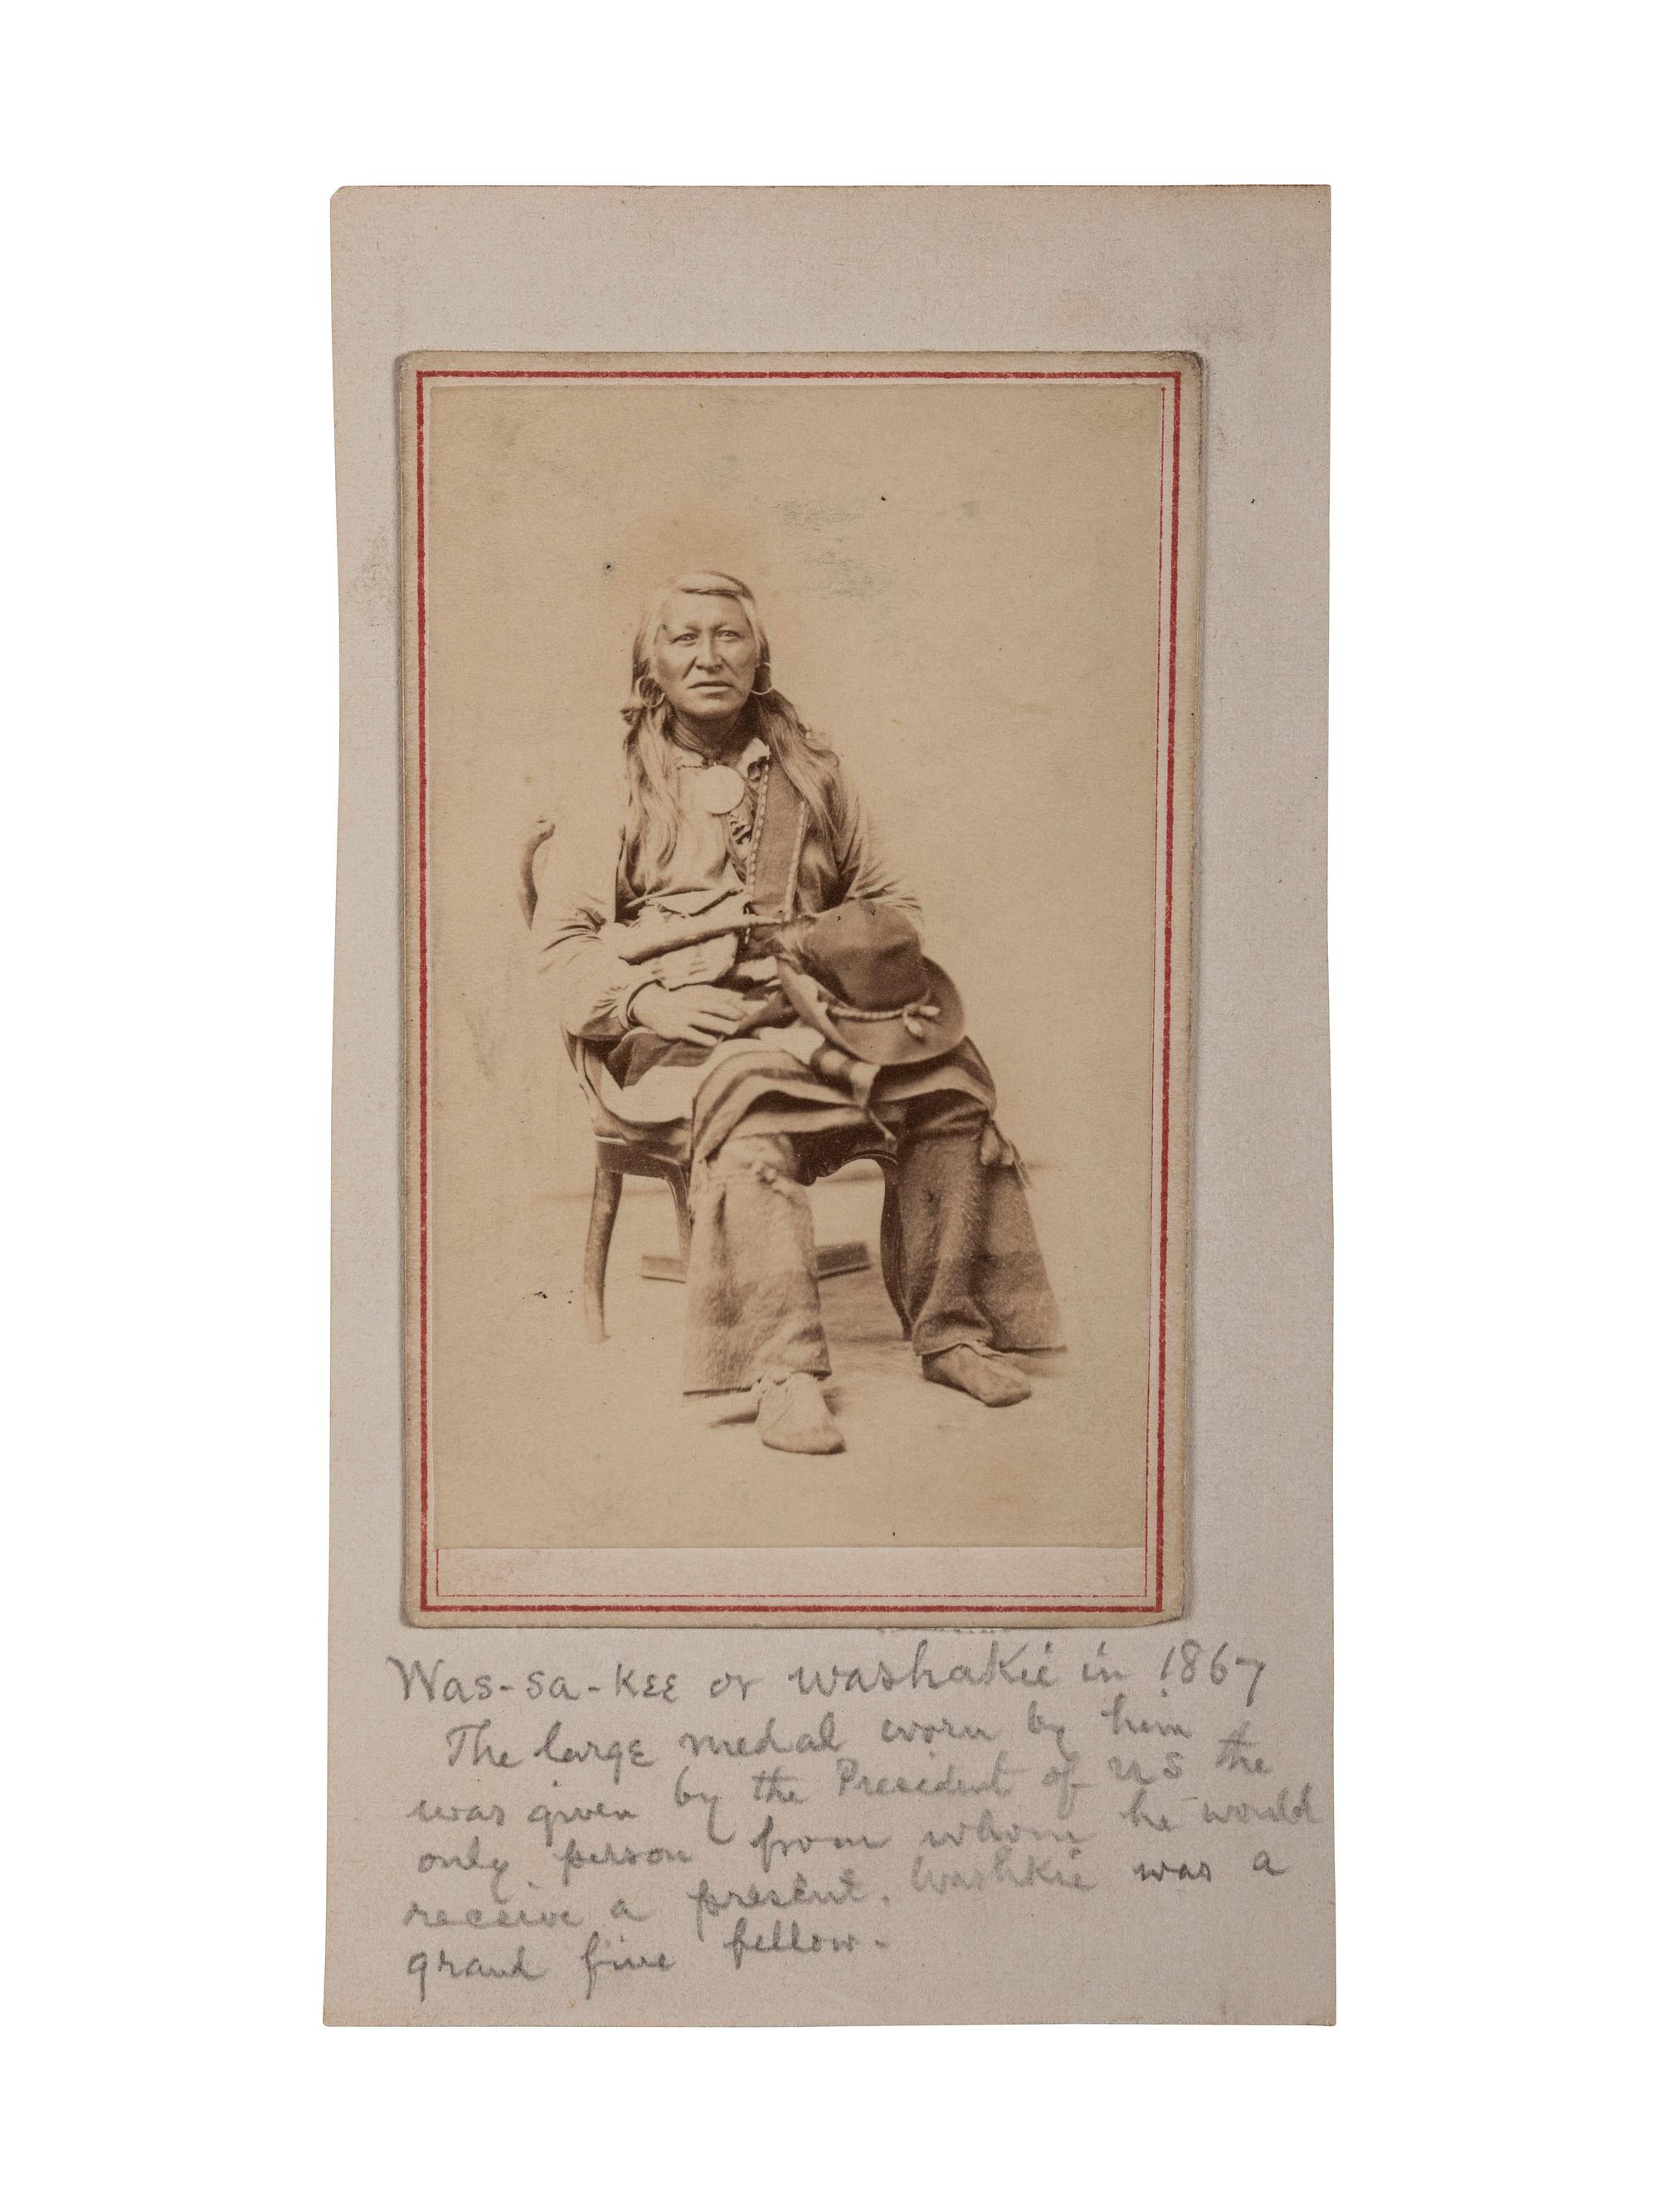 Was-sa-kee or Washakie in 1867
The large medal worn by him
was given by the President of US the
only person from whom he would
receive a present. Washkie was a
grand fine fellow-